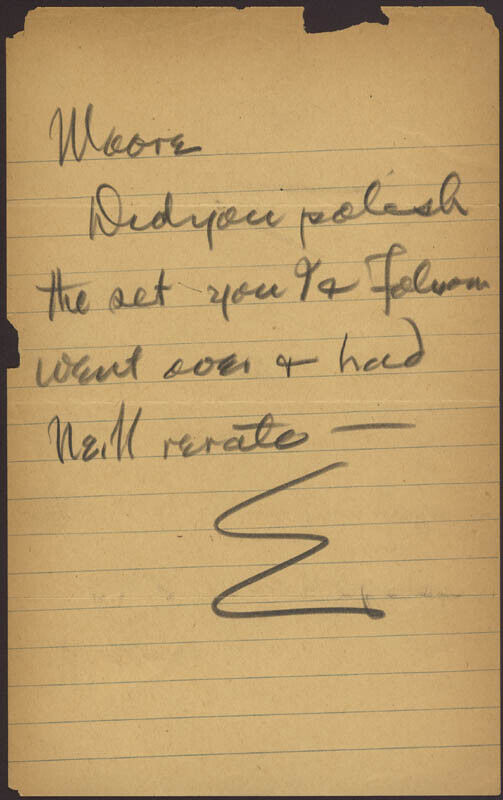 Moore
Did you polish
the set you & Folsom
went over & had
Neill rerate —
E